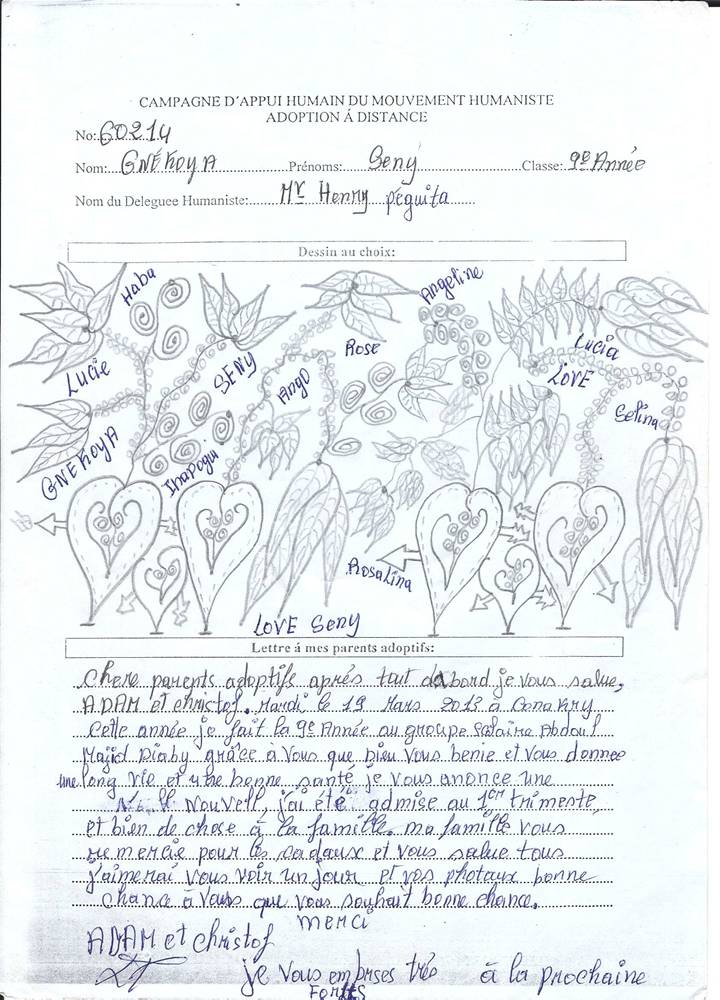 CAMPAGNE D'APPUI HUMAIN DU MOUVEMENT HUMANISTE
ADOPTION Á DISTANCE
No: 60214
Nom: GNÉKOYA Prénoms: Seny Classe: 9e Année
Nom du Deleguee Humaniste: Mr Henry péguita
Dessin au choix:
Haba
Angeline
Lucie
SENY
Rose
Lucia
Ango
LOVE
Selina
GNEKOYA
Inapogui
Rosalina
LOVE Seny
Lettre á mes parents adoptifs:
chere parents adoptifs aprés tout dabord je vous salue,
ADAM et christof. Mardi le 19 Mars 2013 à Conakry
Cette année je fait la 9e Année au groupe Scolaire Abdoul
Majid Diaby grâce à Vous que Dieu Vous benie et Vous donnee
une long vie et une bonne santé je vous anonce une
Nouvell, j'ai été admise au 1er trimeste,
et bien de chose à la famille. ma famille vous
remercie pour les cadaux et vous salue tous
j'aimerai vous voir un jour et vos photaux bonne
chance à Vous que vous souhait bonne chance.
merci
ADAM et christof
je vous embrises trés à la prochaine
FORTES